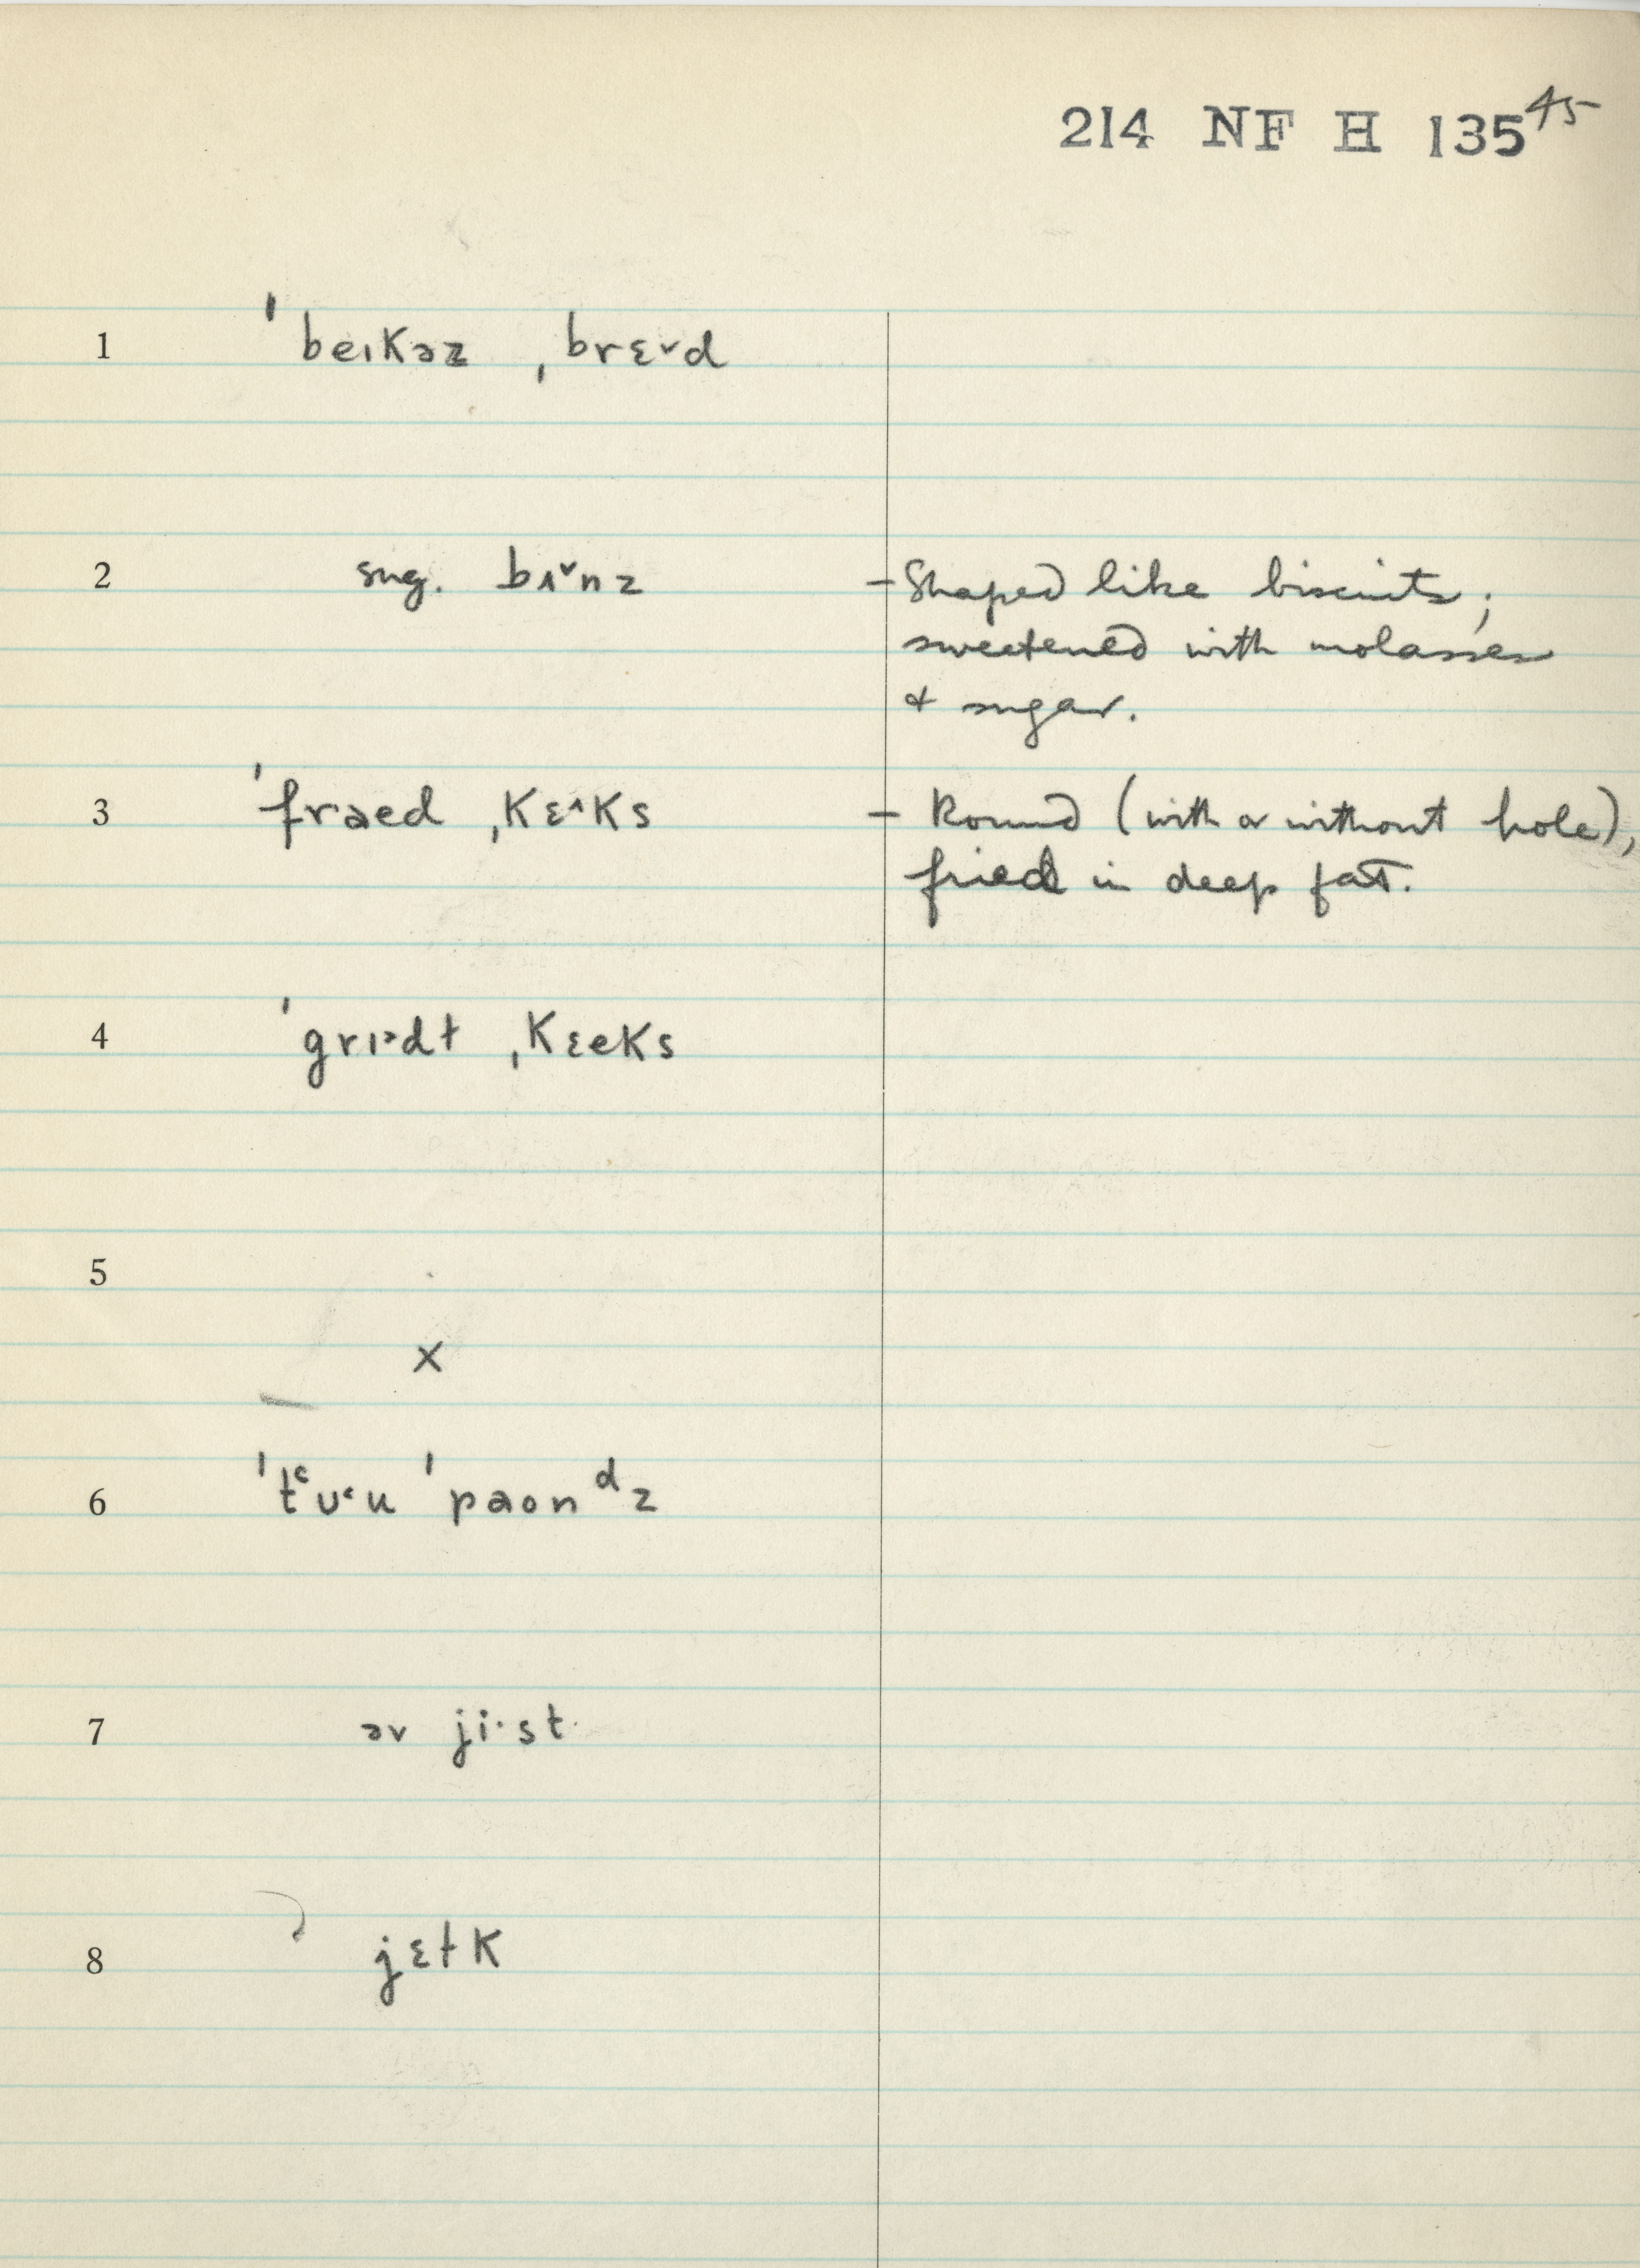 214 NF H 135 45
1 ˈbeɪkəz ˌbrɛ˅d
2 sug. bʌ˅nz – Shaped like biscuits;
sweetened with molasses
& sugar.
3 ˈfraed ˌkɛ˄ks – Round (with or without hole),
fried in deep fat.
4 ˈgrɪ˃dɫ ˌkɛeks
5
x
6 ˈtʿʊ˂u ˈpaonᵈz
7 əv ji·st
8 jɛɫk